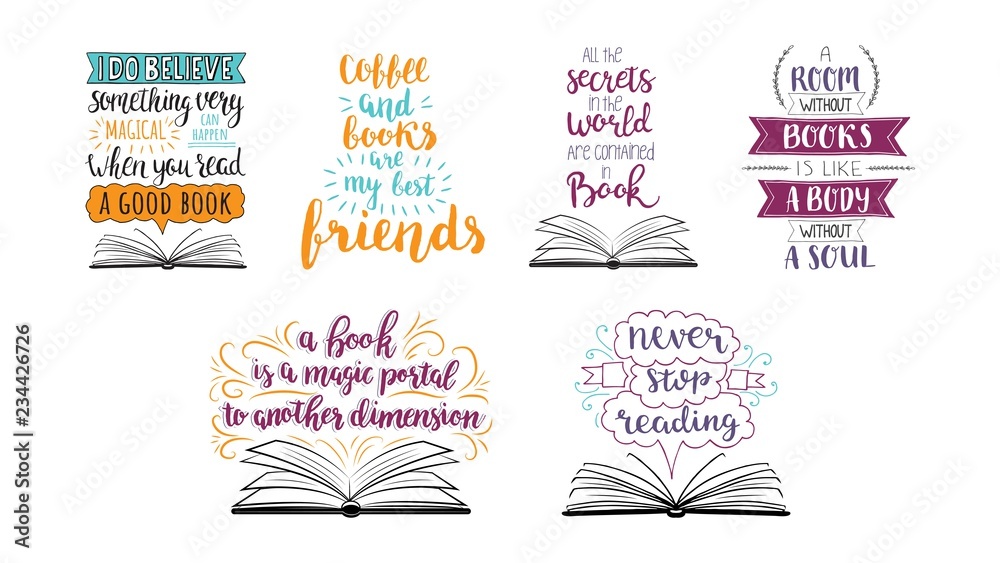 I DO BELIEVE
something very
MAGICAL
CAN
HAPPEN
when you read
A GOOD BOOK
Coffee
and
books
are
my best
friends
ALL THE
secrets
in the
world
ARE CONTAINED
in
Book
A
ROOM
WITHOUT
BOOKS
IS LIKE
A BODY
WITHOUT
A SOUL
a book
is a magic portal
to another dimension
never
stop
reading
Adobe Stock | #234426726